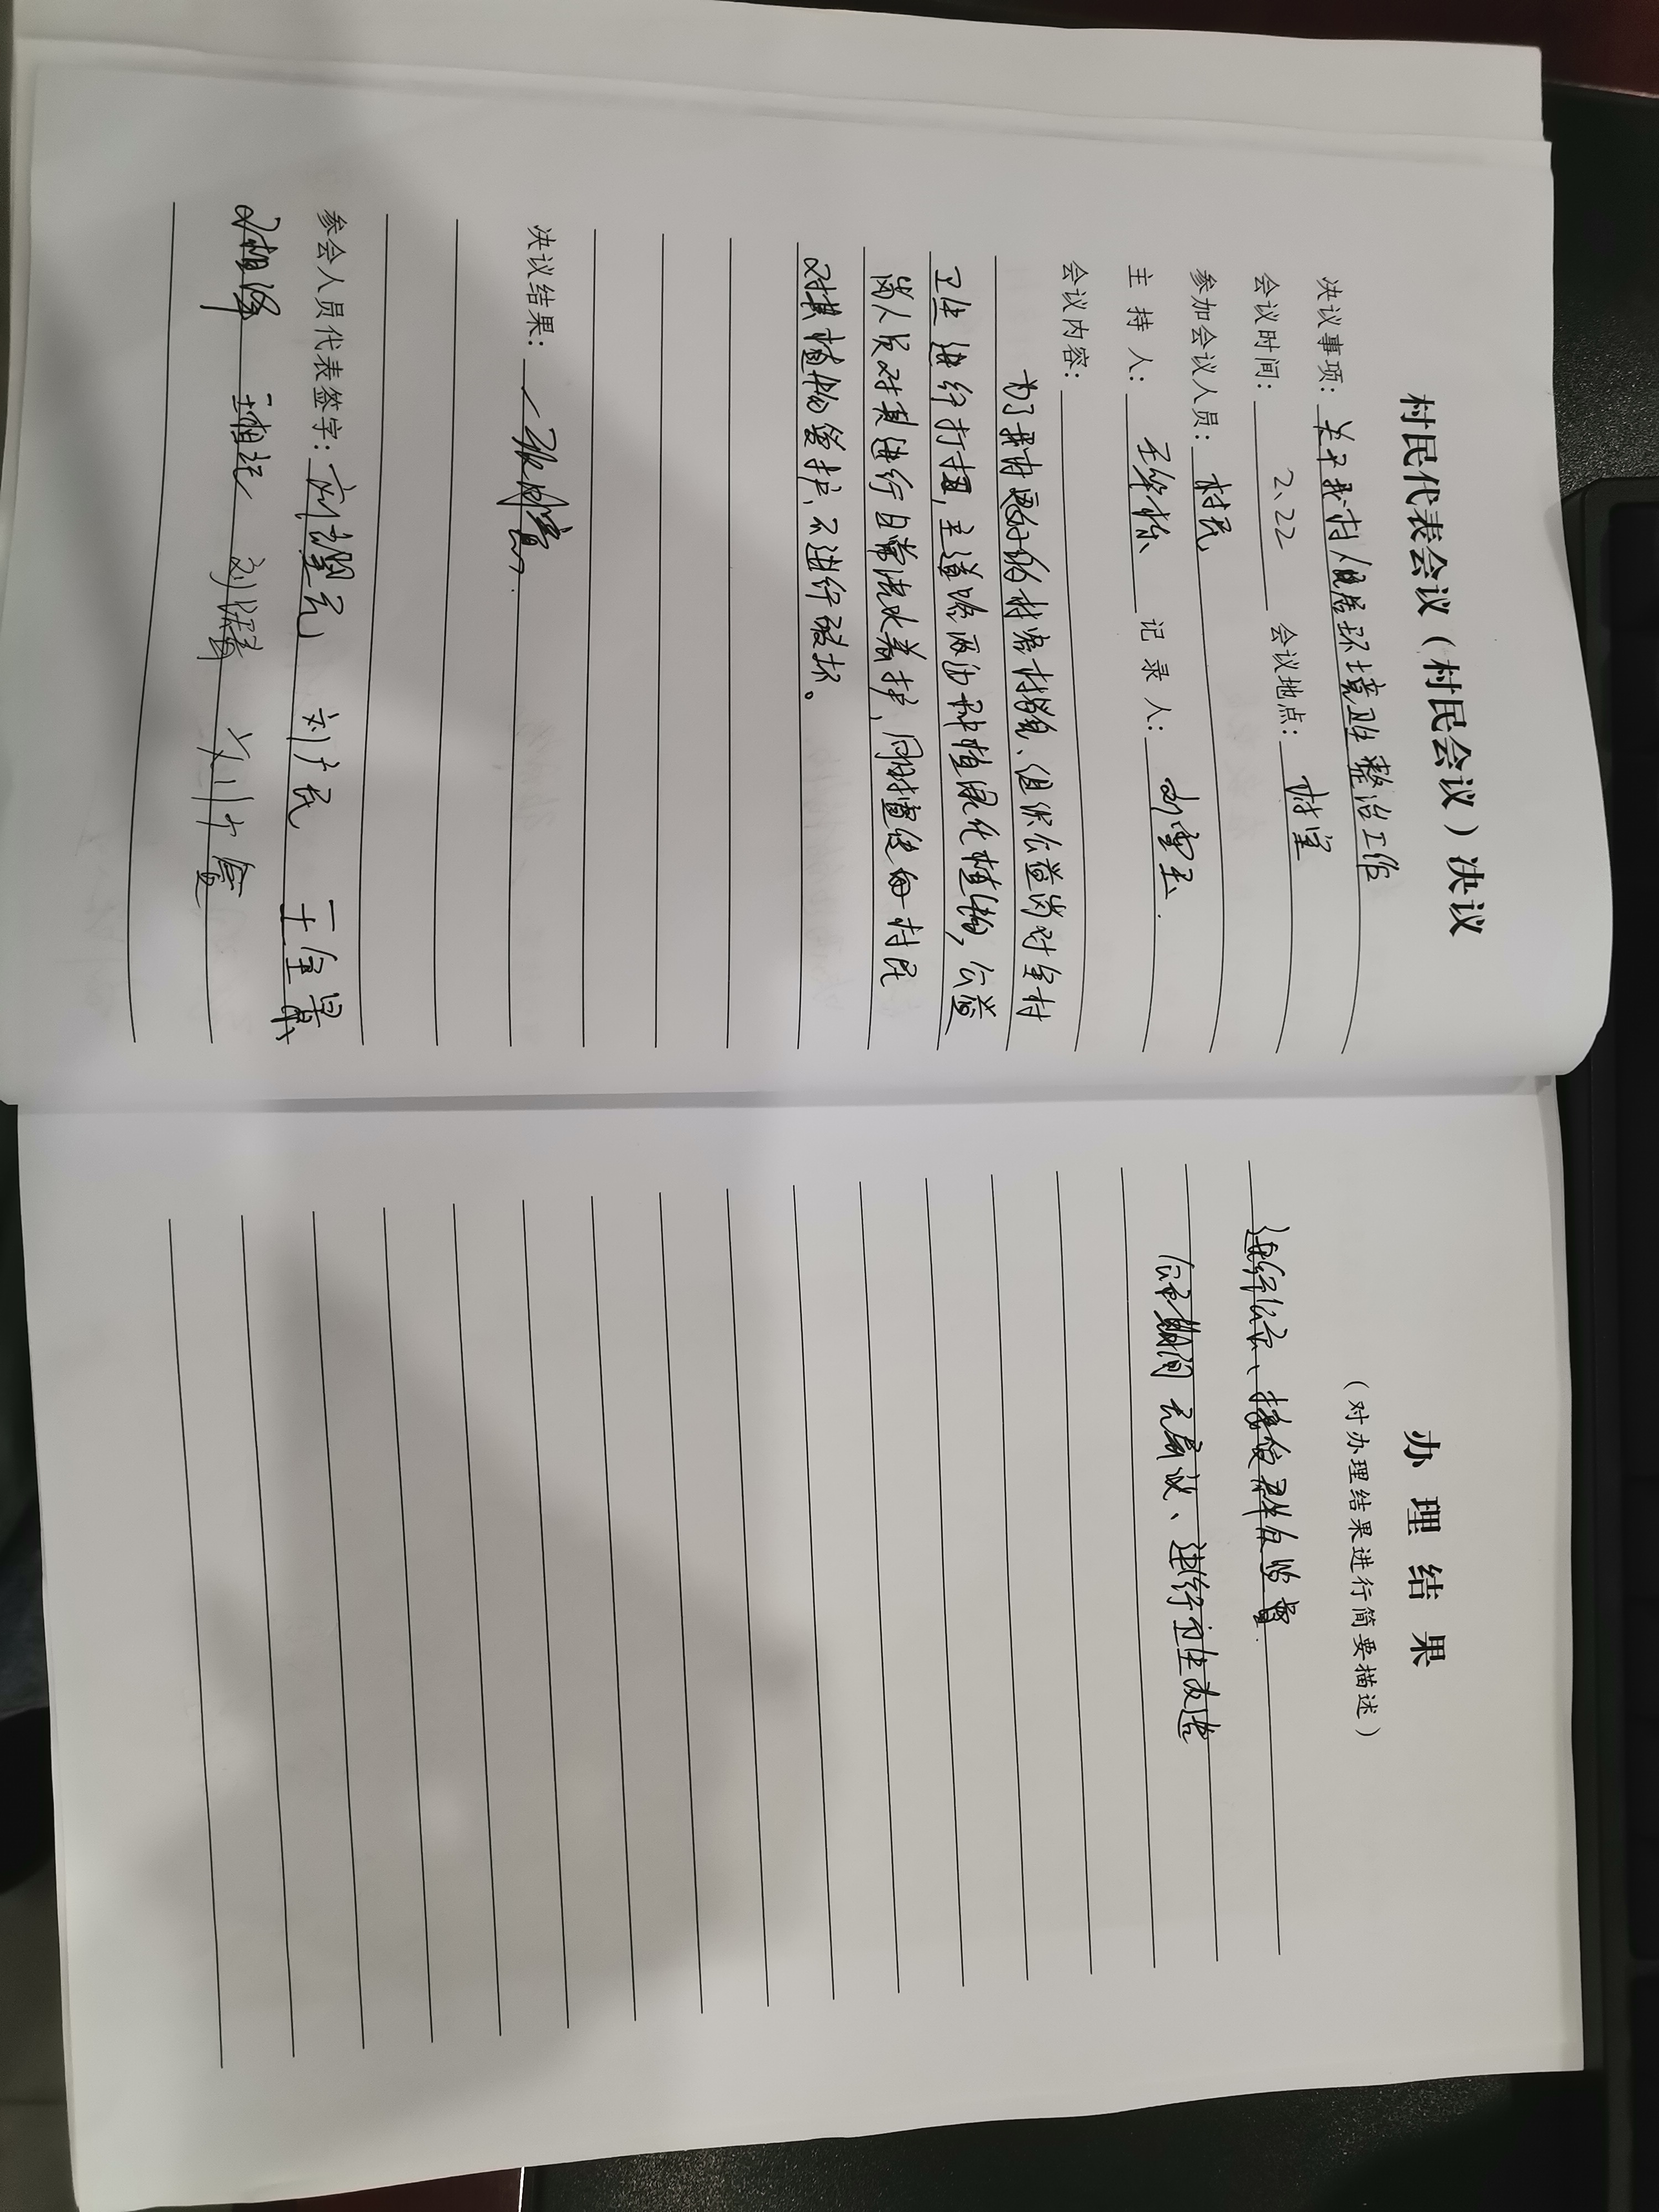 村民代表会议（村民会议）决议
决议事项: 关于我村人居环境卫生整治工作
会议时间: 2、22 会议地点: 村室
参加会议人员: 村民
主持人: 王华栋 记录人: 刘雪玉.
会议内容:
为了我村更好的村容村貌、组织公益岗对全村
卫生进行打扫,主道路两边种植绿化植物,公益
岗人员对其进行日常浇水养护,同时宣传每村民
对其植物爱护、不进行破坏。
决议结果: 一致同意.
参会人员代表签字: 刘望元 刘广民 王全景
刘相泽 王相记 刘 刘个
办理结果
（对办理结果进行简要描述）
进行公示、接受群众监督.
公示期间无异议、进行卫生改造